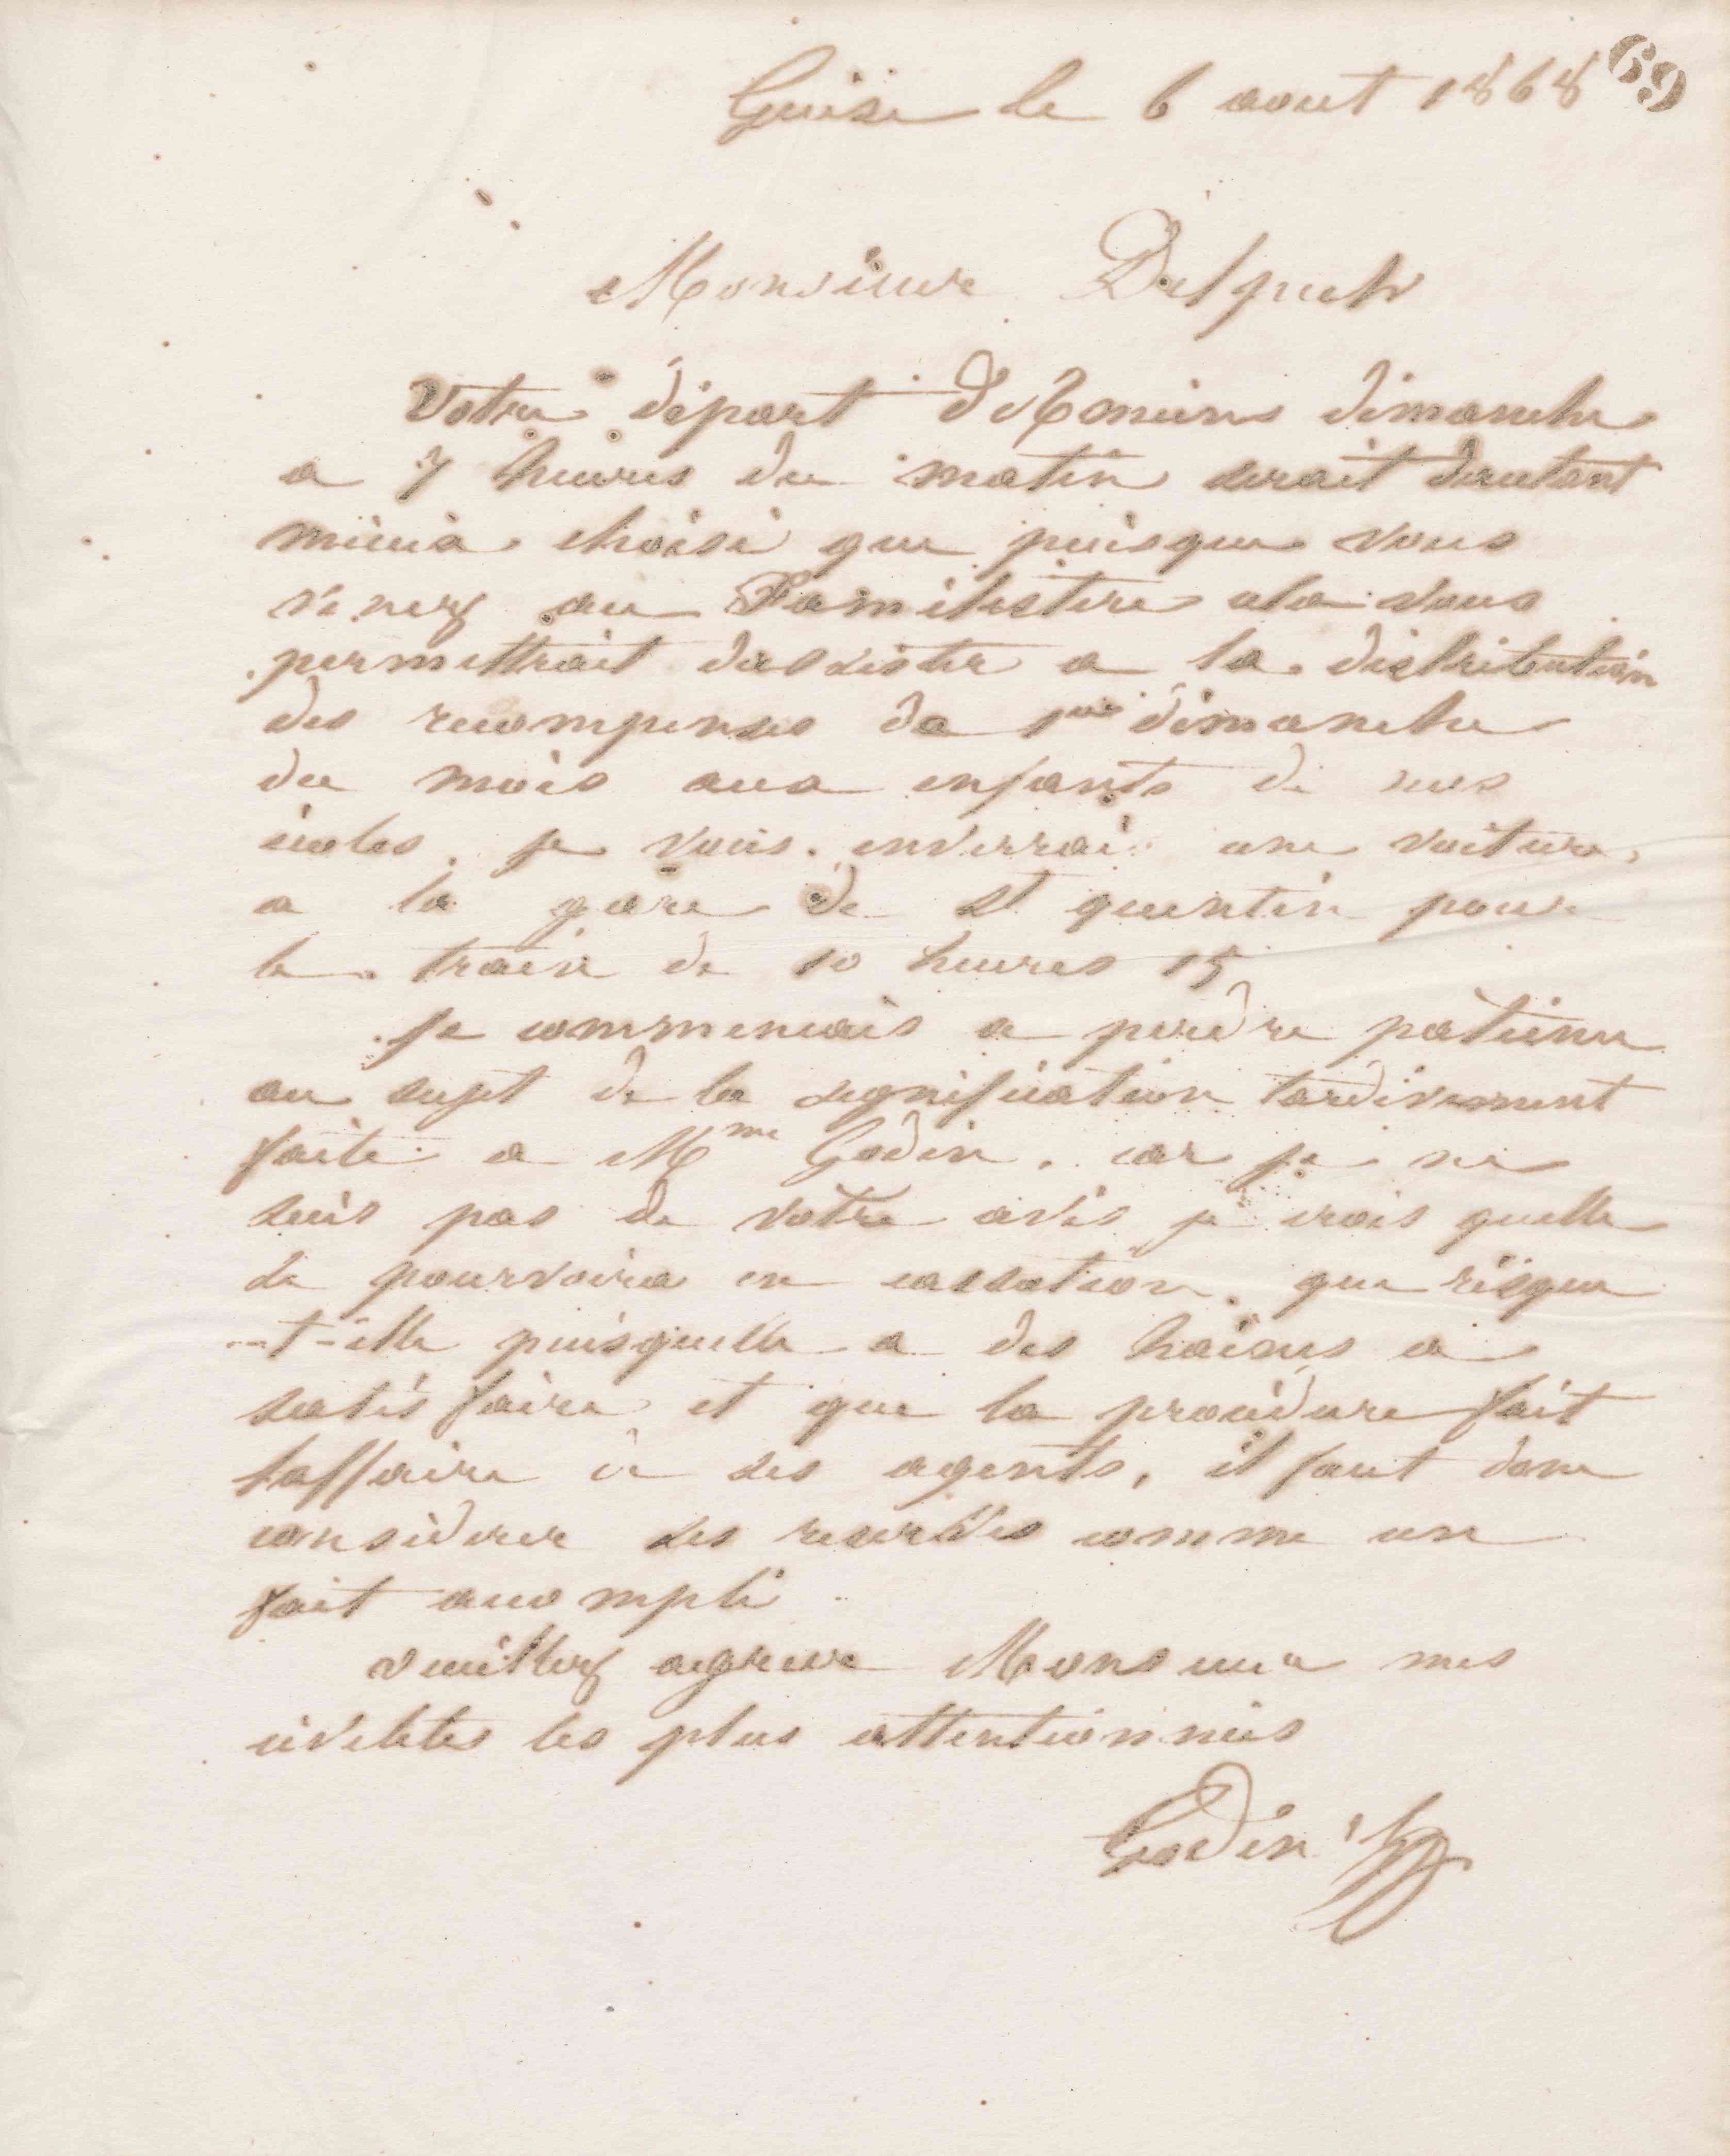 69
Guise le 6 aout 1868
Monsieur Delpech
Votre départ d'Amiens dimanche
a 7 heures du matin serait dautant
mieux choisi que puisque vous
venez au Familistère cela vous
permettrait dassister a la distribution
des recompenses du 1er dimanche
du mois aux enfants de nos
écoles. je vous enverrai une voiture
a la gare de St quentin pour
le train de 10 heures 15
je commencais a perdre patience
au sujet de la signification tardivement
faite a Mme Godin, car je ne
suis pas de votre avis je crois quelle
se pourvoira en cassation. que risque
-t-elle puisquelle a des haines a
satisfaire et que la procédure fait
laffaire de ses agents, il faut donc
considerer ses reserves comme un
fait accompli
veuillez agreer Monsieur mes
civilités les plus attentionnées
Godin